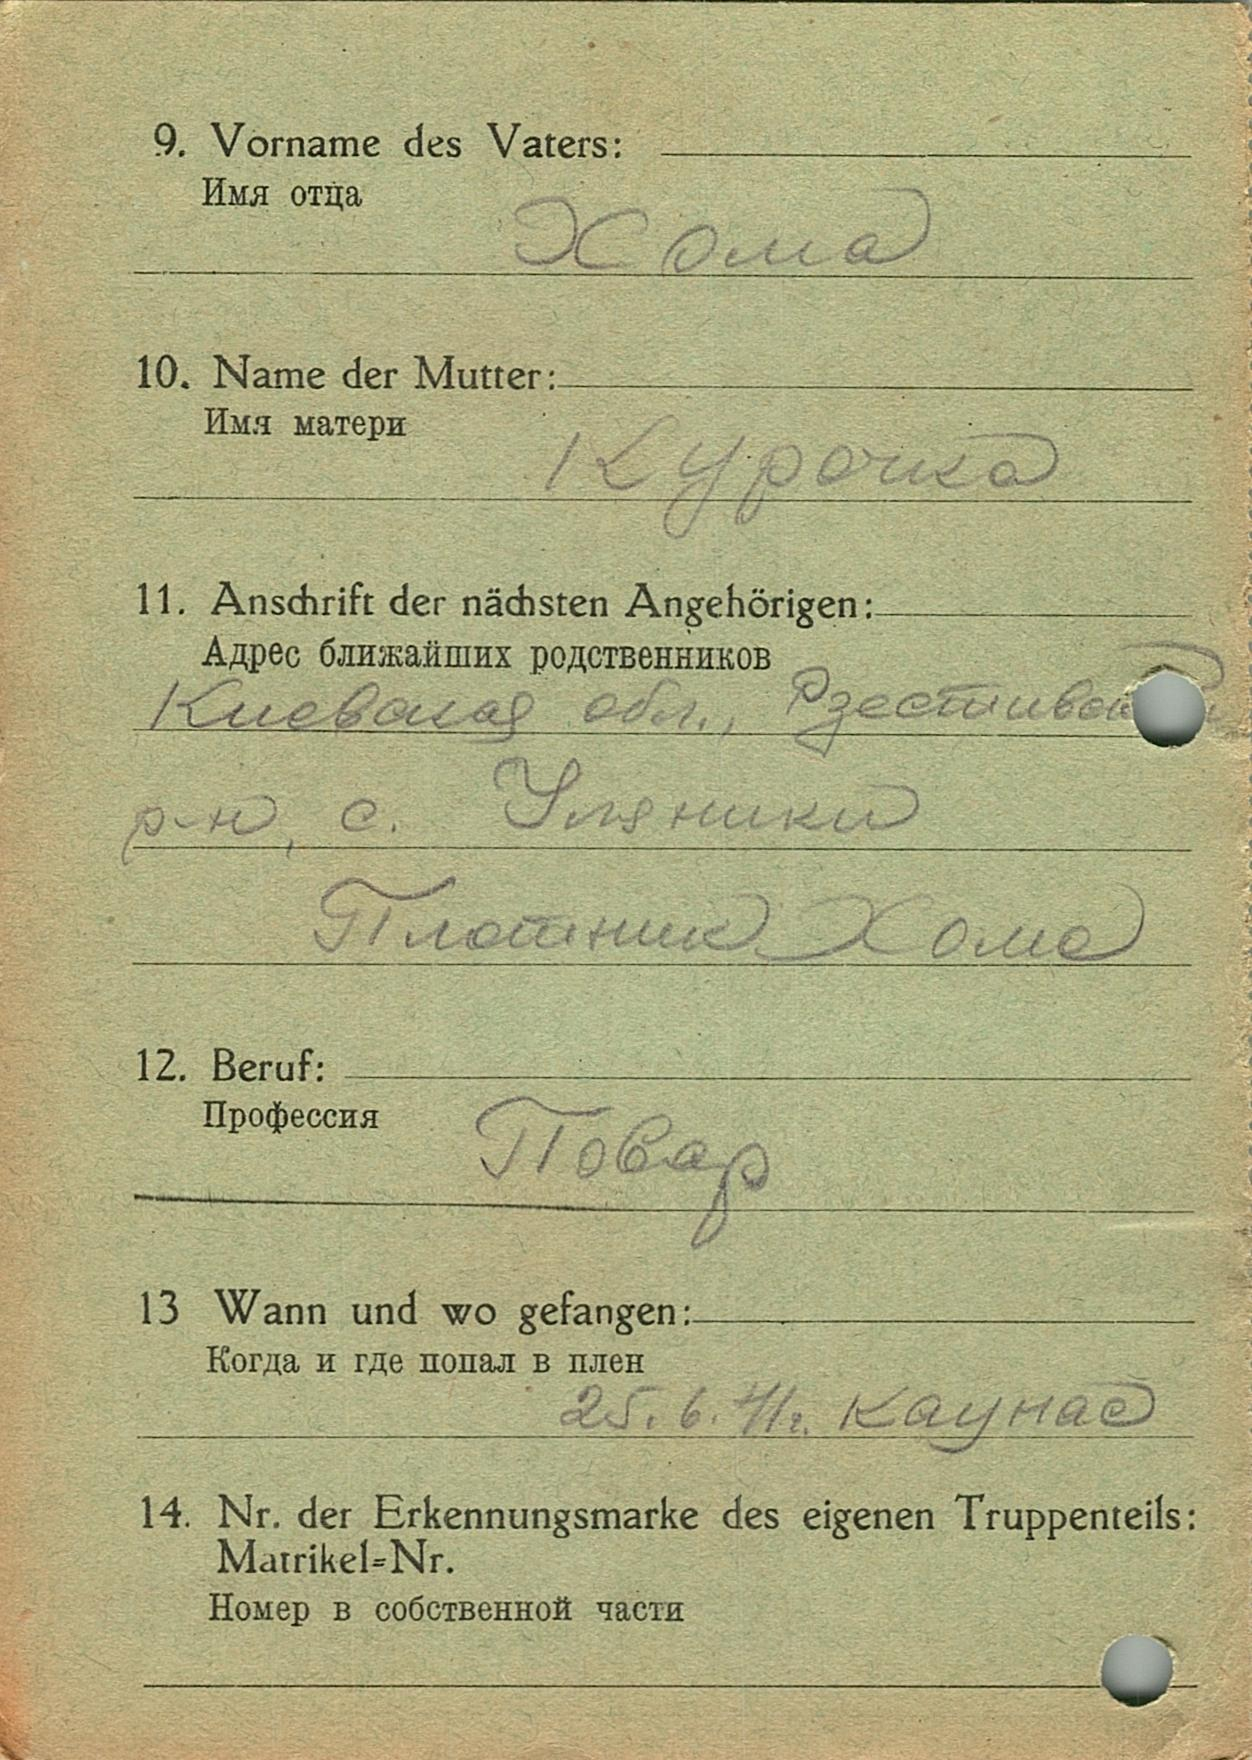 9. Vorname des Vaters:
Имя отца
Хома
10. Name der Mutter:
Имя матери
Курочка
11. Anschrift der nächsten Angehörigen:
Адрес ближайших родственников
Киевская обл.,
р-н, с. Уляники
Плотник Хома
12. Beruf:
Профессия
Повар
13 Wann und wo gefangen:
Когда и где попал в плен
25.6.41г. Каунас
14. Nr. der Erkennungsmarke des eigenen Truppenteils:
Matrikel=Nr.
Номер в собственной части